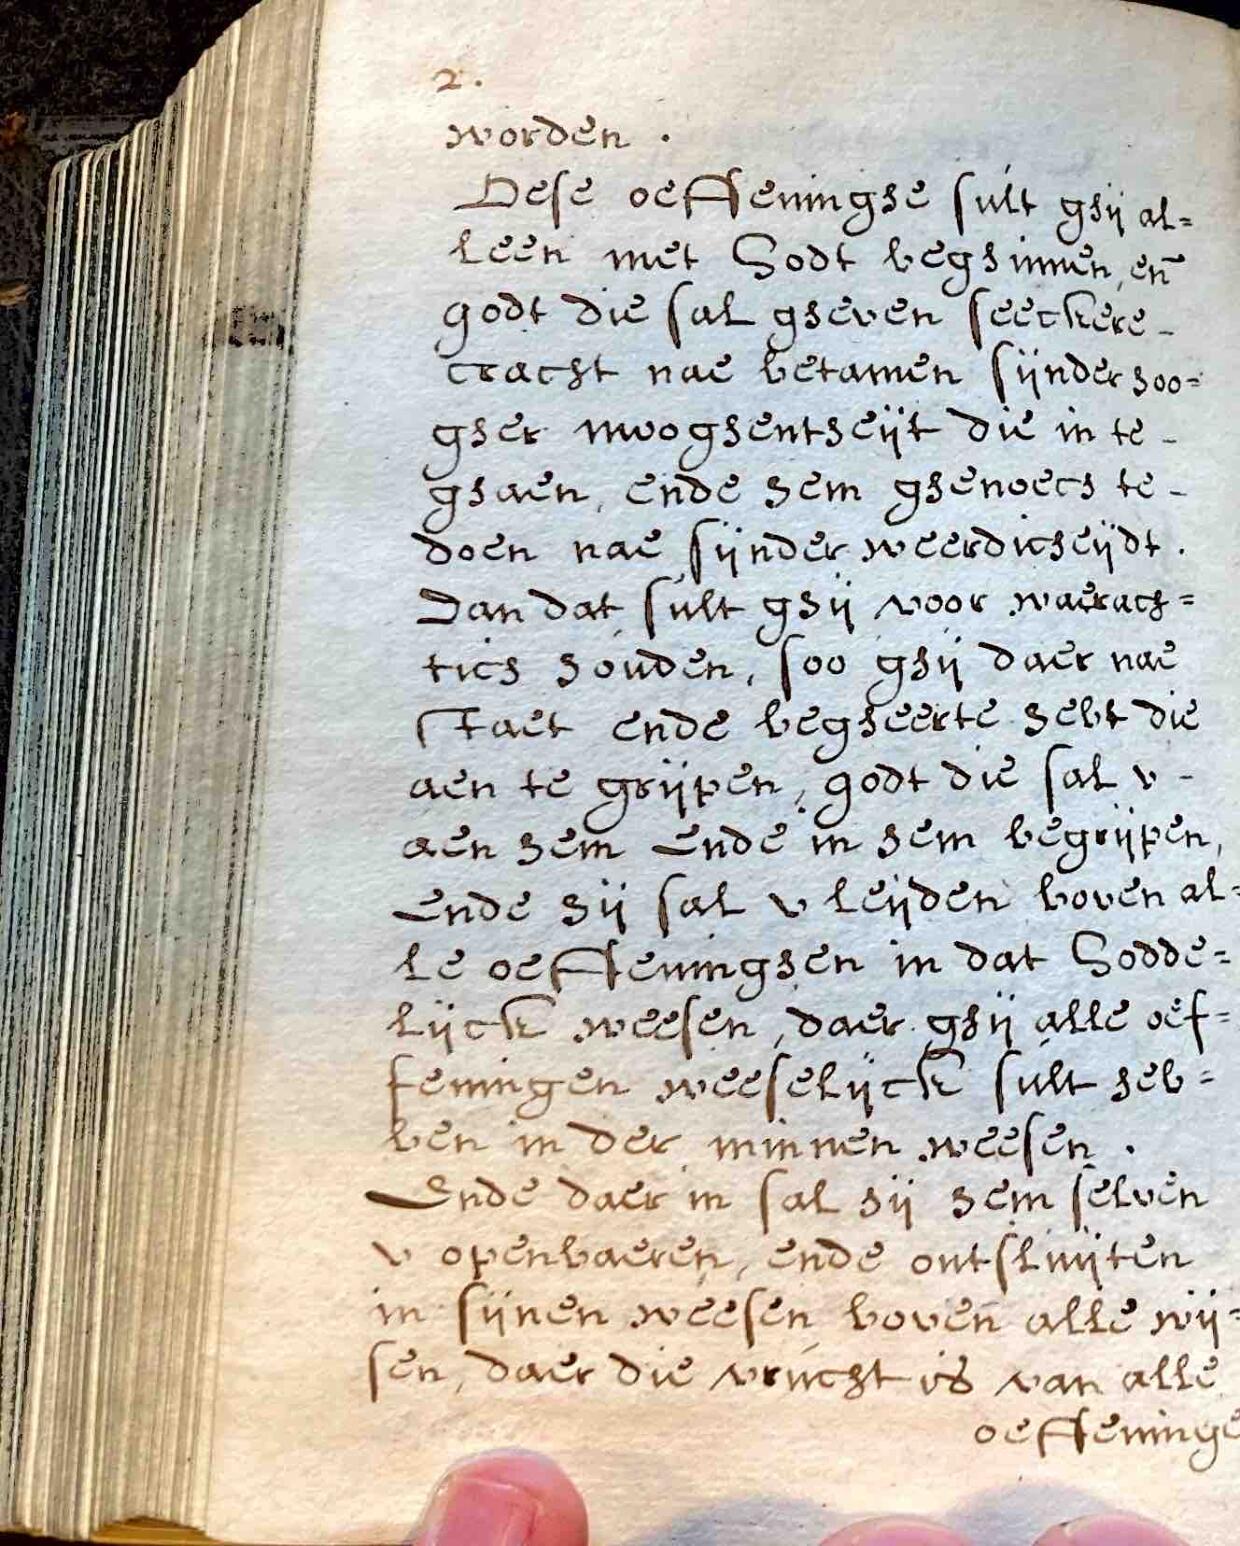 2.
worden .
Dese oeffeninghe sult ghij al=
leen met Godt beghinnen, en̄
godt die sal gheven seeckere -
cracht nae betamen sijnder hoo=
gher mooghentheijt die in te -
ghaen, ende hem ghenoech te -
doen nae sijnder weerdicheijdt .
Dan dat sult ghij voor waerach=
tich houden, soo ghij daer nae
staet ende begheerte hebt die
aen te grijpen, godt die sal v -
aen hem ende in hem begrijpen,
Ende hij sal v leijden boven al=
le oeffeninghen in dat Godde=
lijck weesen, daer ghij alle oef=
feningen weeselijck sult heb=
ben in der minnen weesen .
Ende daer in sal hij hem selven
v openbaeren, ende ontsluijten
in sijnen weesen boven alle wij=
sen, daer die vrucht is van alle
oeffeninge